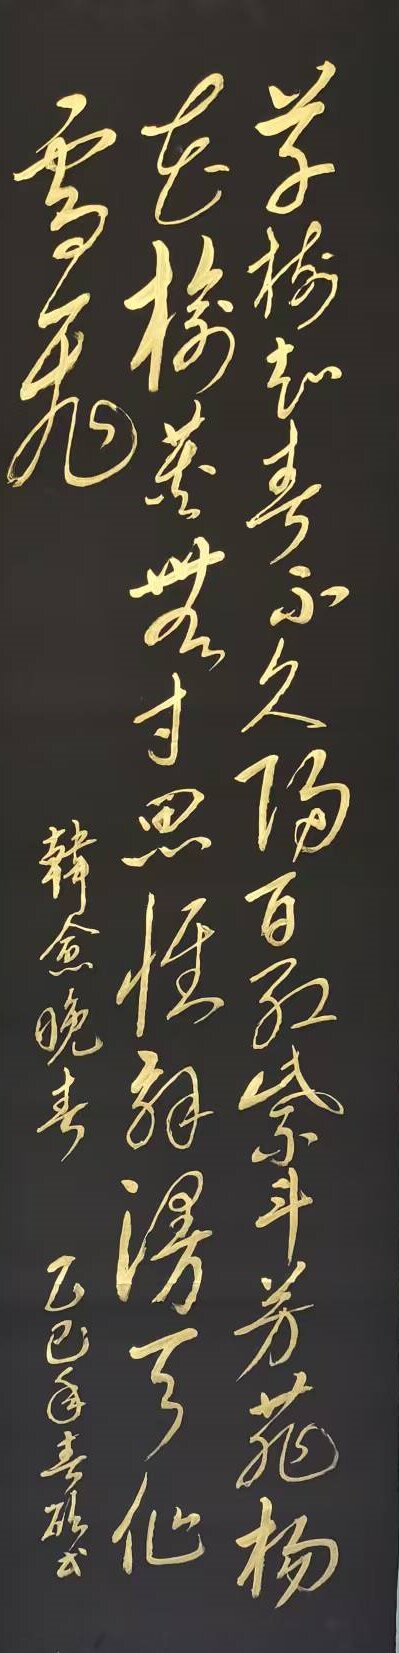 草樹知春不久歸百紅紫斗芳菲楊
花榆莢無才思惟解漫天作
雪飛
韓愈晚春
乙巳年春